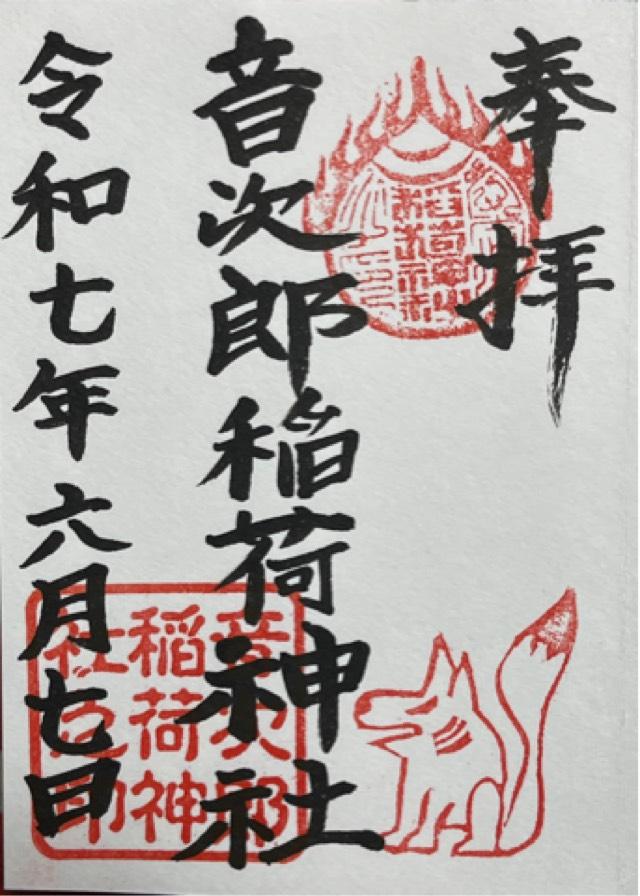 奉拝
稲荷神社
音次郎稲荷神社
音次郎
稲荷神
社之印
令和七年六月七日